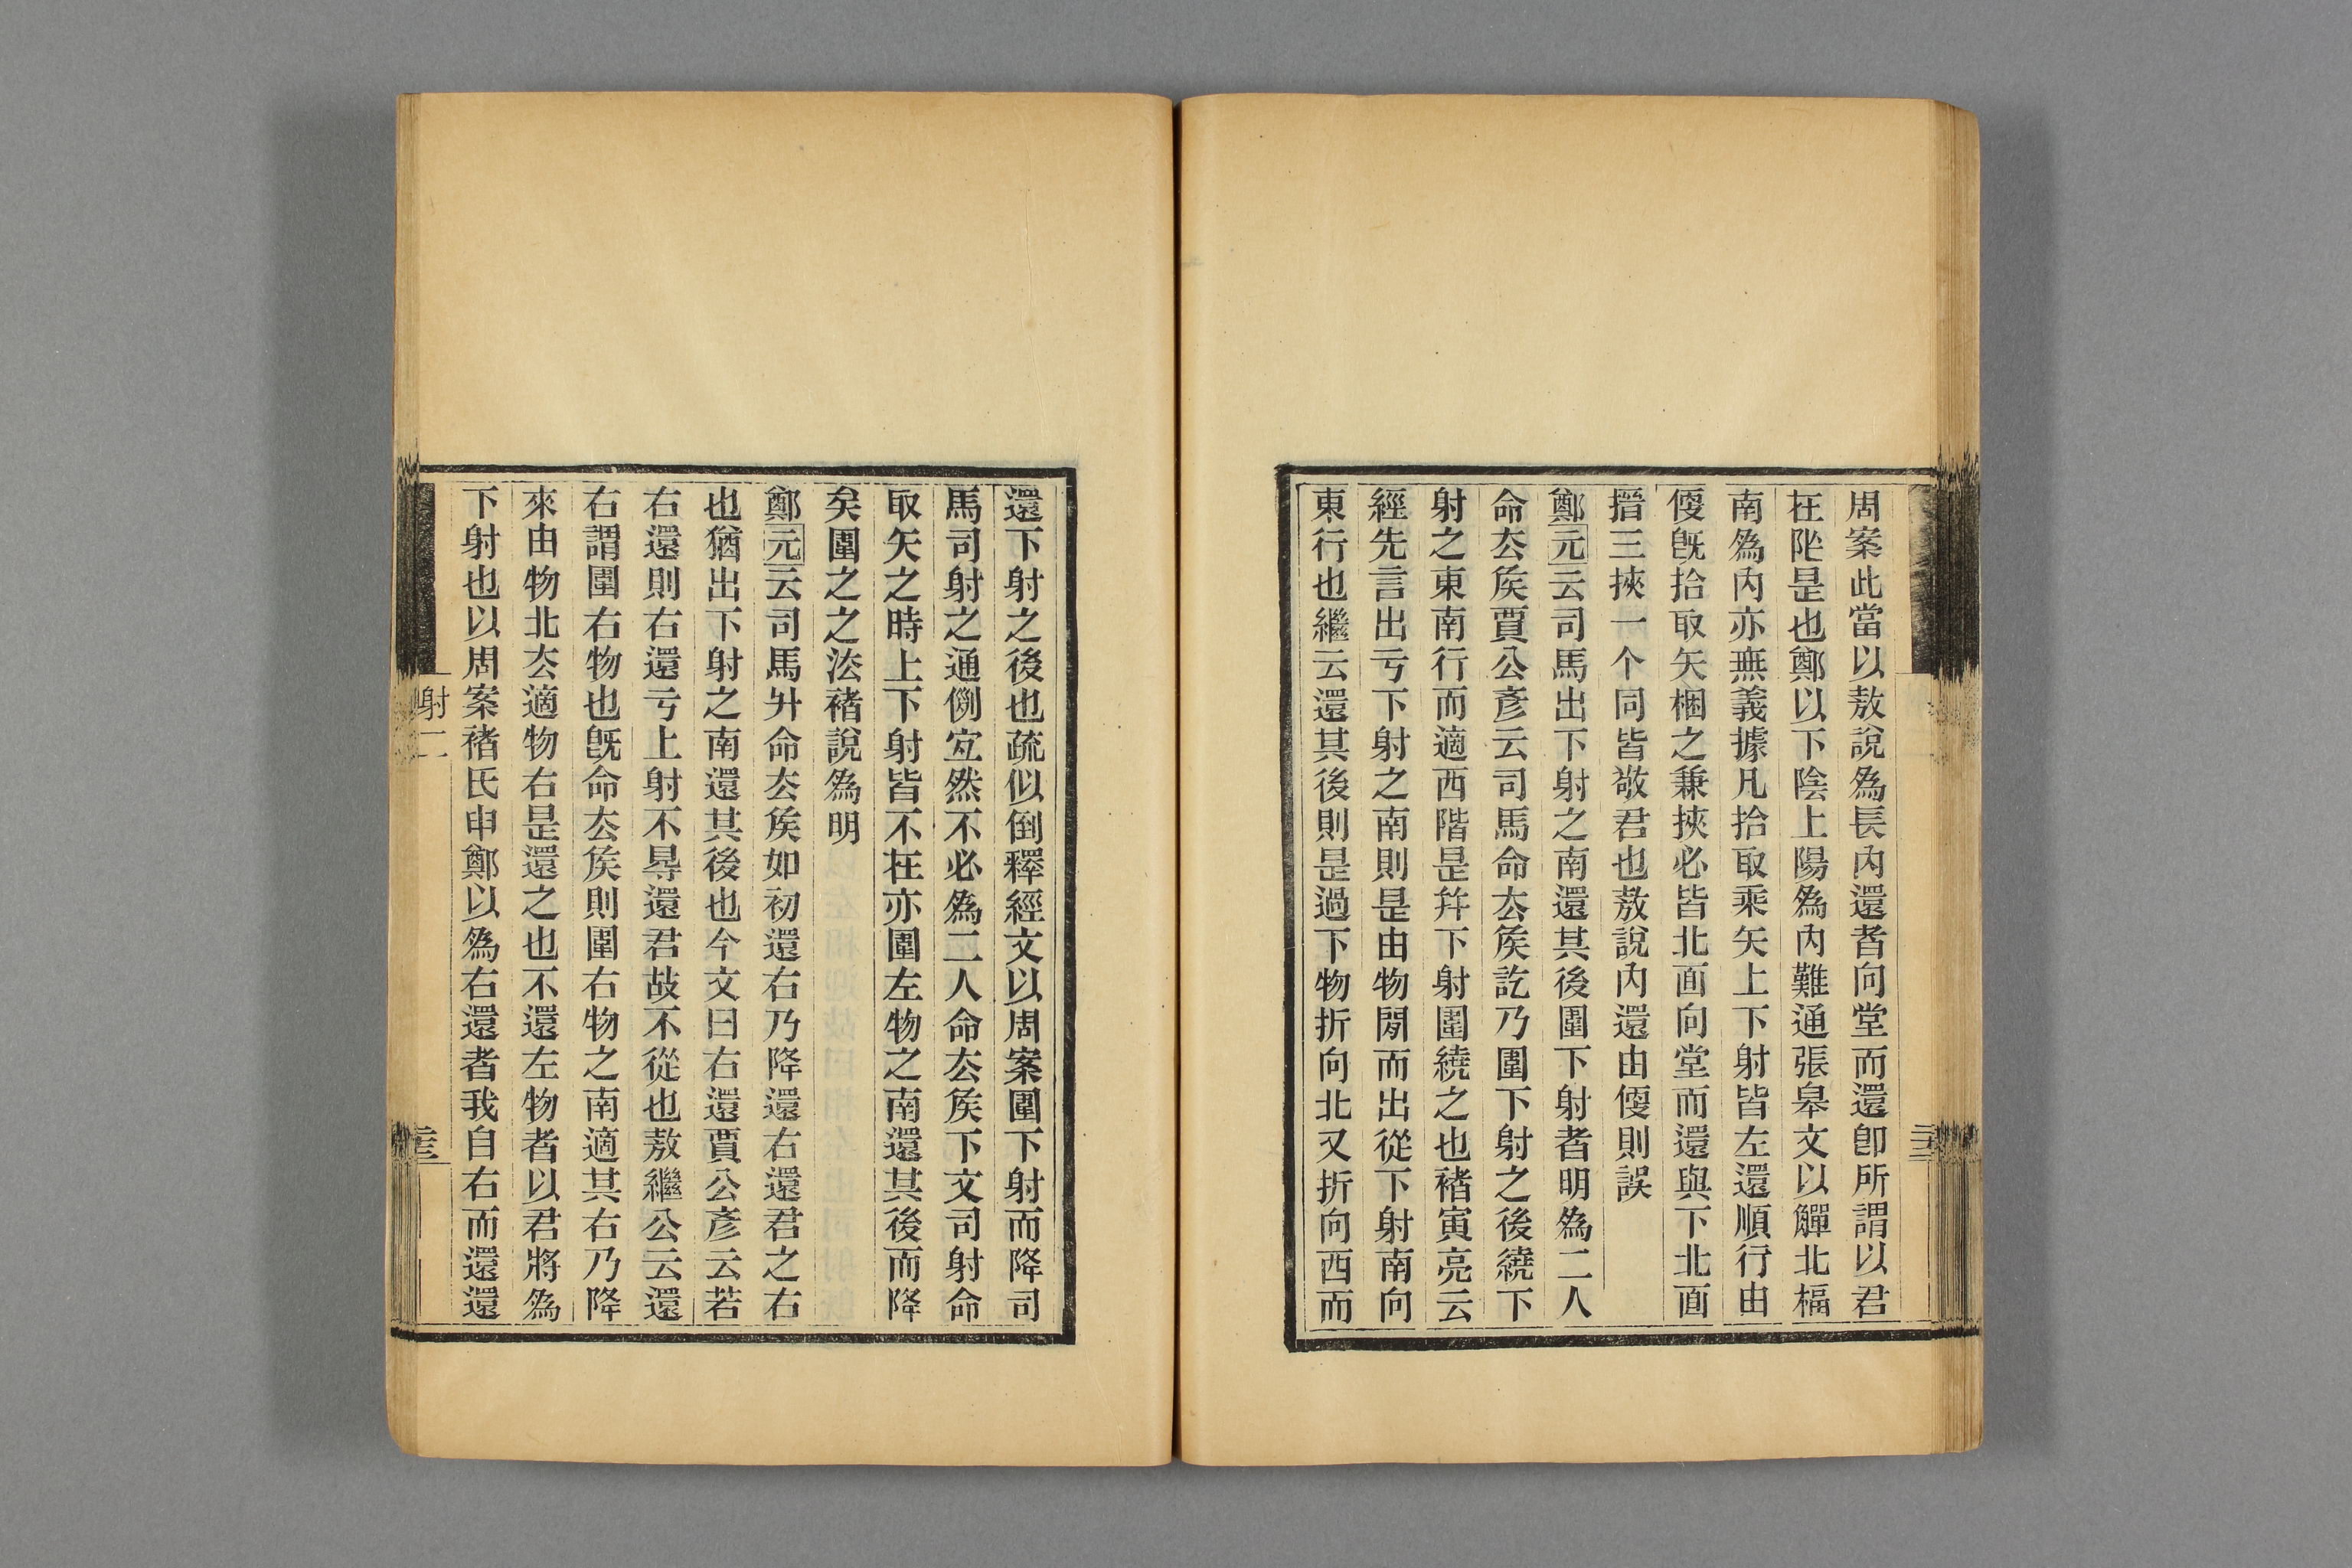 周案此當以敖說爲長內還者向堂而還卽所謂以君
在阼是也鄭以下陰上陽爲內難通張皋文以觶北楅
南爲內亦無義據凡拾取乘矢上下射皆左還順行由
㑻旣拾取矢梱之兼挾必皆北面向堂而還與下北面
搢三挾一个同皆敬君也敖說內還由㑻則誤
鄭元云司馬出下射之南還其後圍下射者明爲二人
命厺矦賈公彥云司馬命厺矦訖乃圍下射之後繞下
射之東南行而適西階是并下射圍繞之也褚寅亮云
經先言出亏下射之南則是由物閒而出從下射南向
東行也繼云還其後則是過下物折向北又折向西而
還下射之後也疏似倒釋經文以周案圍下射而降司
馬司射之通例宐然不必爲二人命厺矦下文司射命
取矢之時上下射皆不在亦圍左物之南還其後而降
矣圍之之法褚說爲明
鄭元云司馬升命厺矦如初還右乃降還右還君之右
也猶出下射之南還其後也今文曰右還賈公彥云若
右還則右還亏上射不㝵還君故不從也敖繼公云還
右謂圍右物也旣命厺矦則圍右物之南適其右乃降
來由物北厺適物右是還之也不還左物者以君將爲
下射也以周案褚氏申鄭以爲右還者我自右而還還
射二